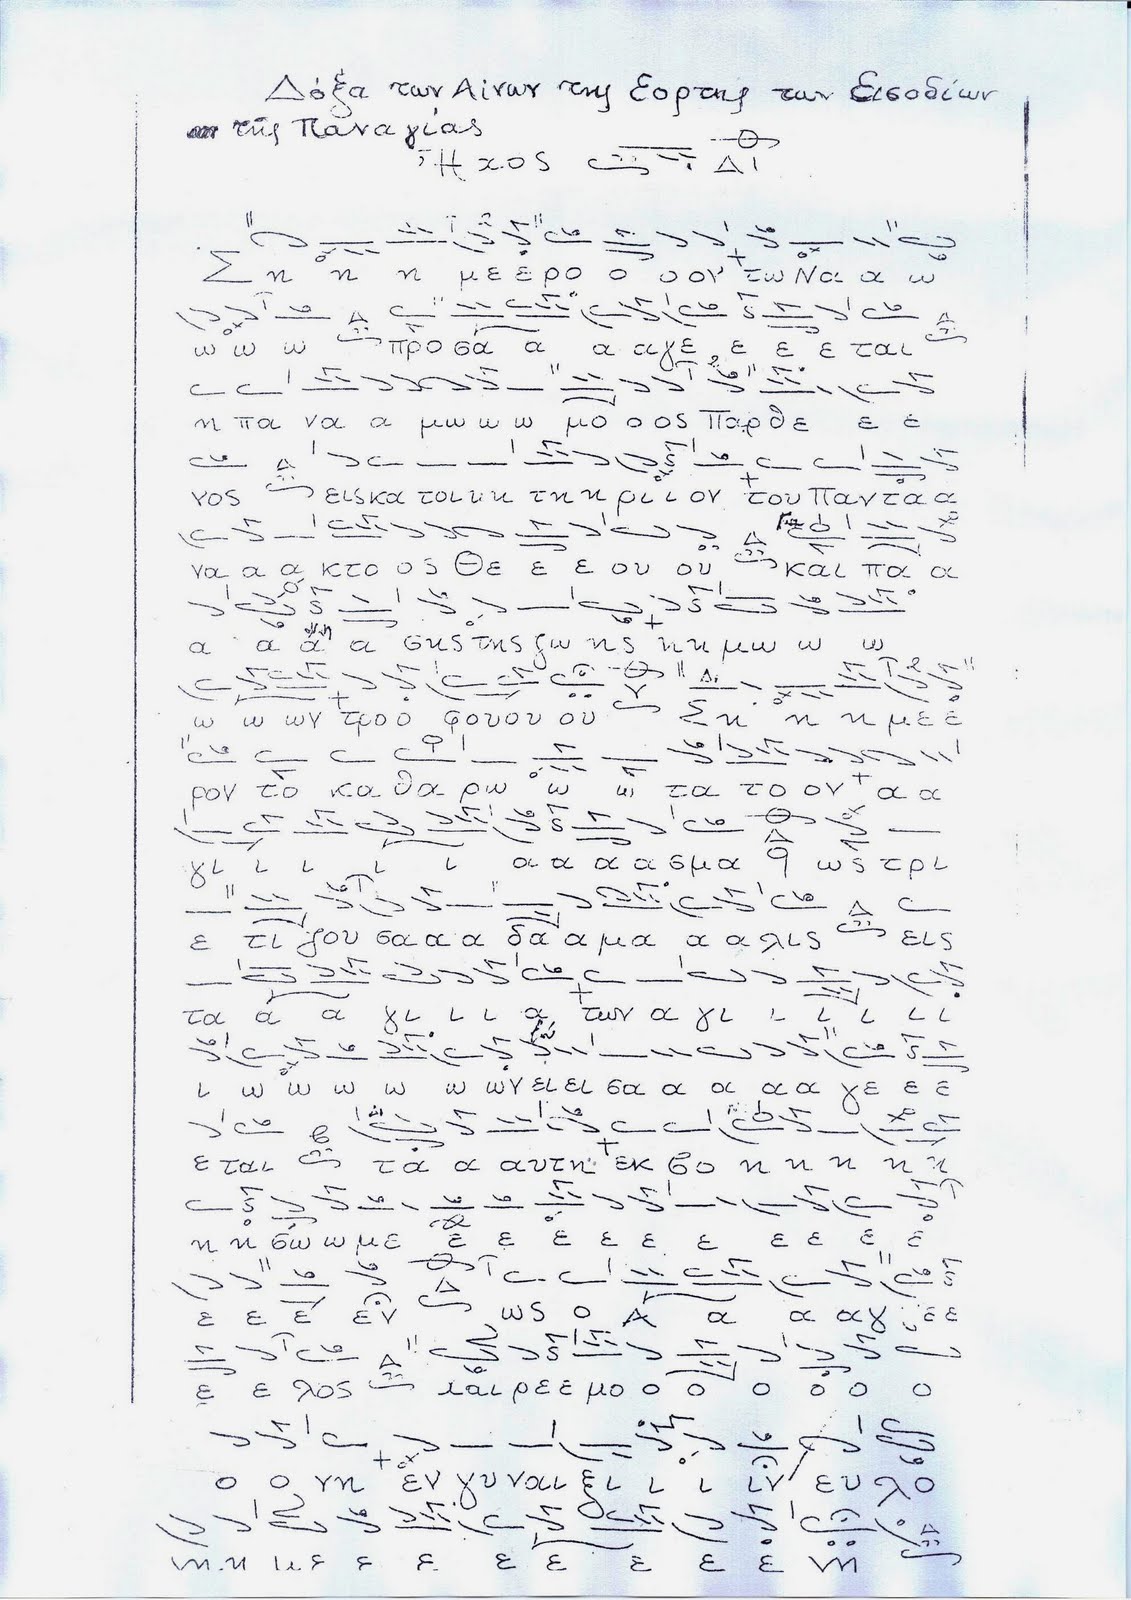 Δόξα των Αίνων της Εορτής των Εισοδίων
της Παναγίας
Ήχος Δι
Ση η η με ε ρο ο ο ον τω Να α ω
ω ω ω προ σα α α α γε ε ε ε ται
η πα να α μω ω ω μο ο ος Παρθε ε ε
νος εις κα τοι κη τη η ρι ι ον του Παν τα α
να α α κτο ος Θε ε ε ου ου και πα α
α α α α σης της ζω ης η η μω ω ω
ω ω ων τρο ο φου ου ου Ση η η με ε
ρον το κα θα ρω ω ω τα το ον α α
γι ι ι ι ι α α α α σμα ως τρι
ε τι ζου σα α α δα α μα α α λις εις
τα α α γι ι ι α των α γι ι ι ι ι ι
ι ω ω ω ω ω ων ει εισα α α α α γε ε ε
ε ται τα α αυτη εκ βο η η η η η
η η σω ω με ε ε ε ε ε ε ε ε ε ε
ε ε ε εν ως ο Α α α αγ ε ε
ε ε λος χαι ρε ε μο ο ο ο ο ο ο
ο ο νη εν γυναι ξι ι ι ιν ευ λο
η με ε ε ε ε ε ε νη